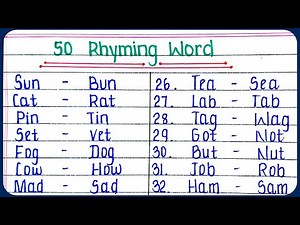 50 Rhyming Word
Sun - Bun
Cat - Rat
Pin - Tin
Set - Vet
Fog - Dog
Cow - How
Mad - Sad
26. Tea - Sea
27. Lab - Tab
28. Tag - Wag
29. Got - Not
30. But - Nut
31. Job - Rob
32. Ham - Sam